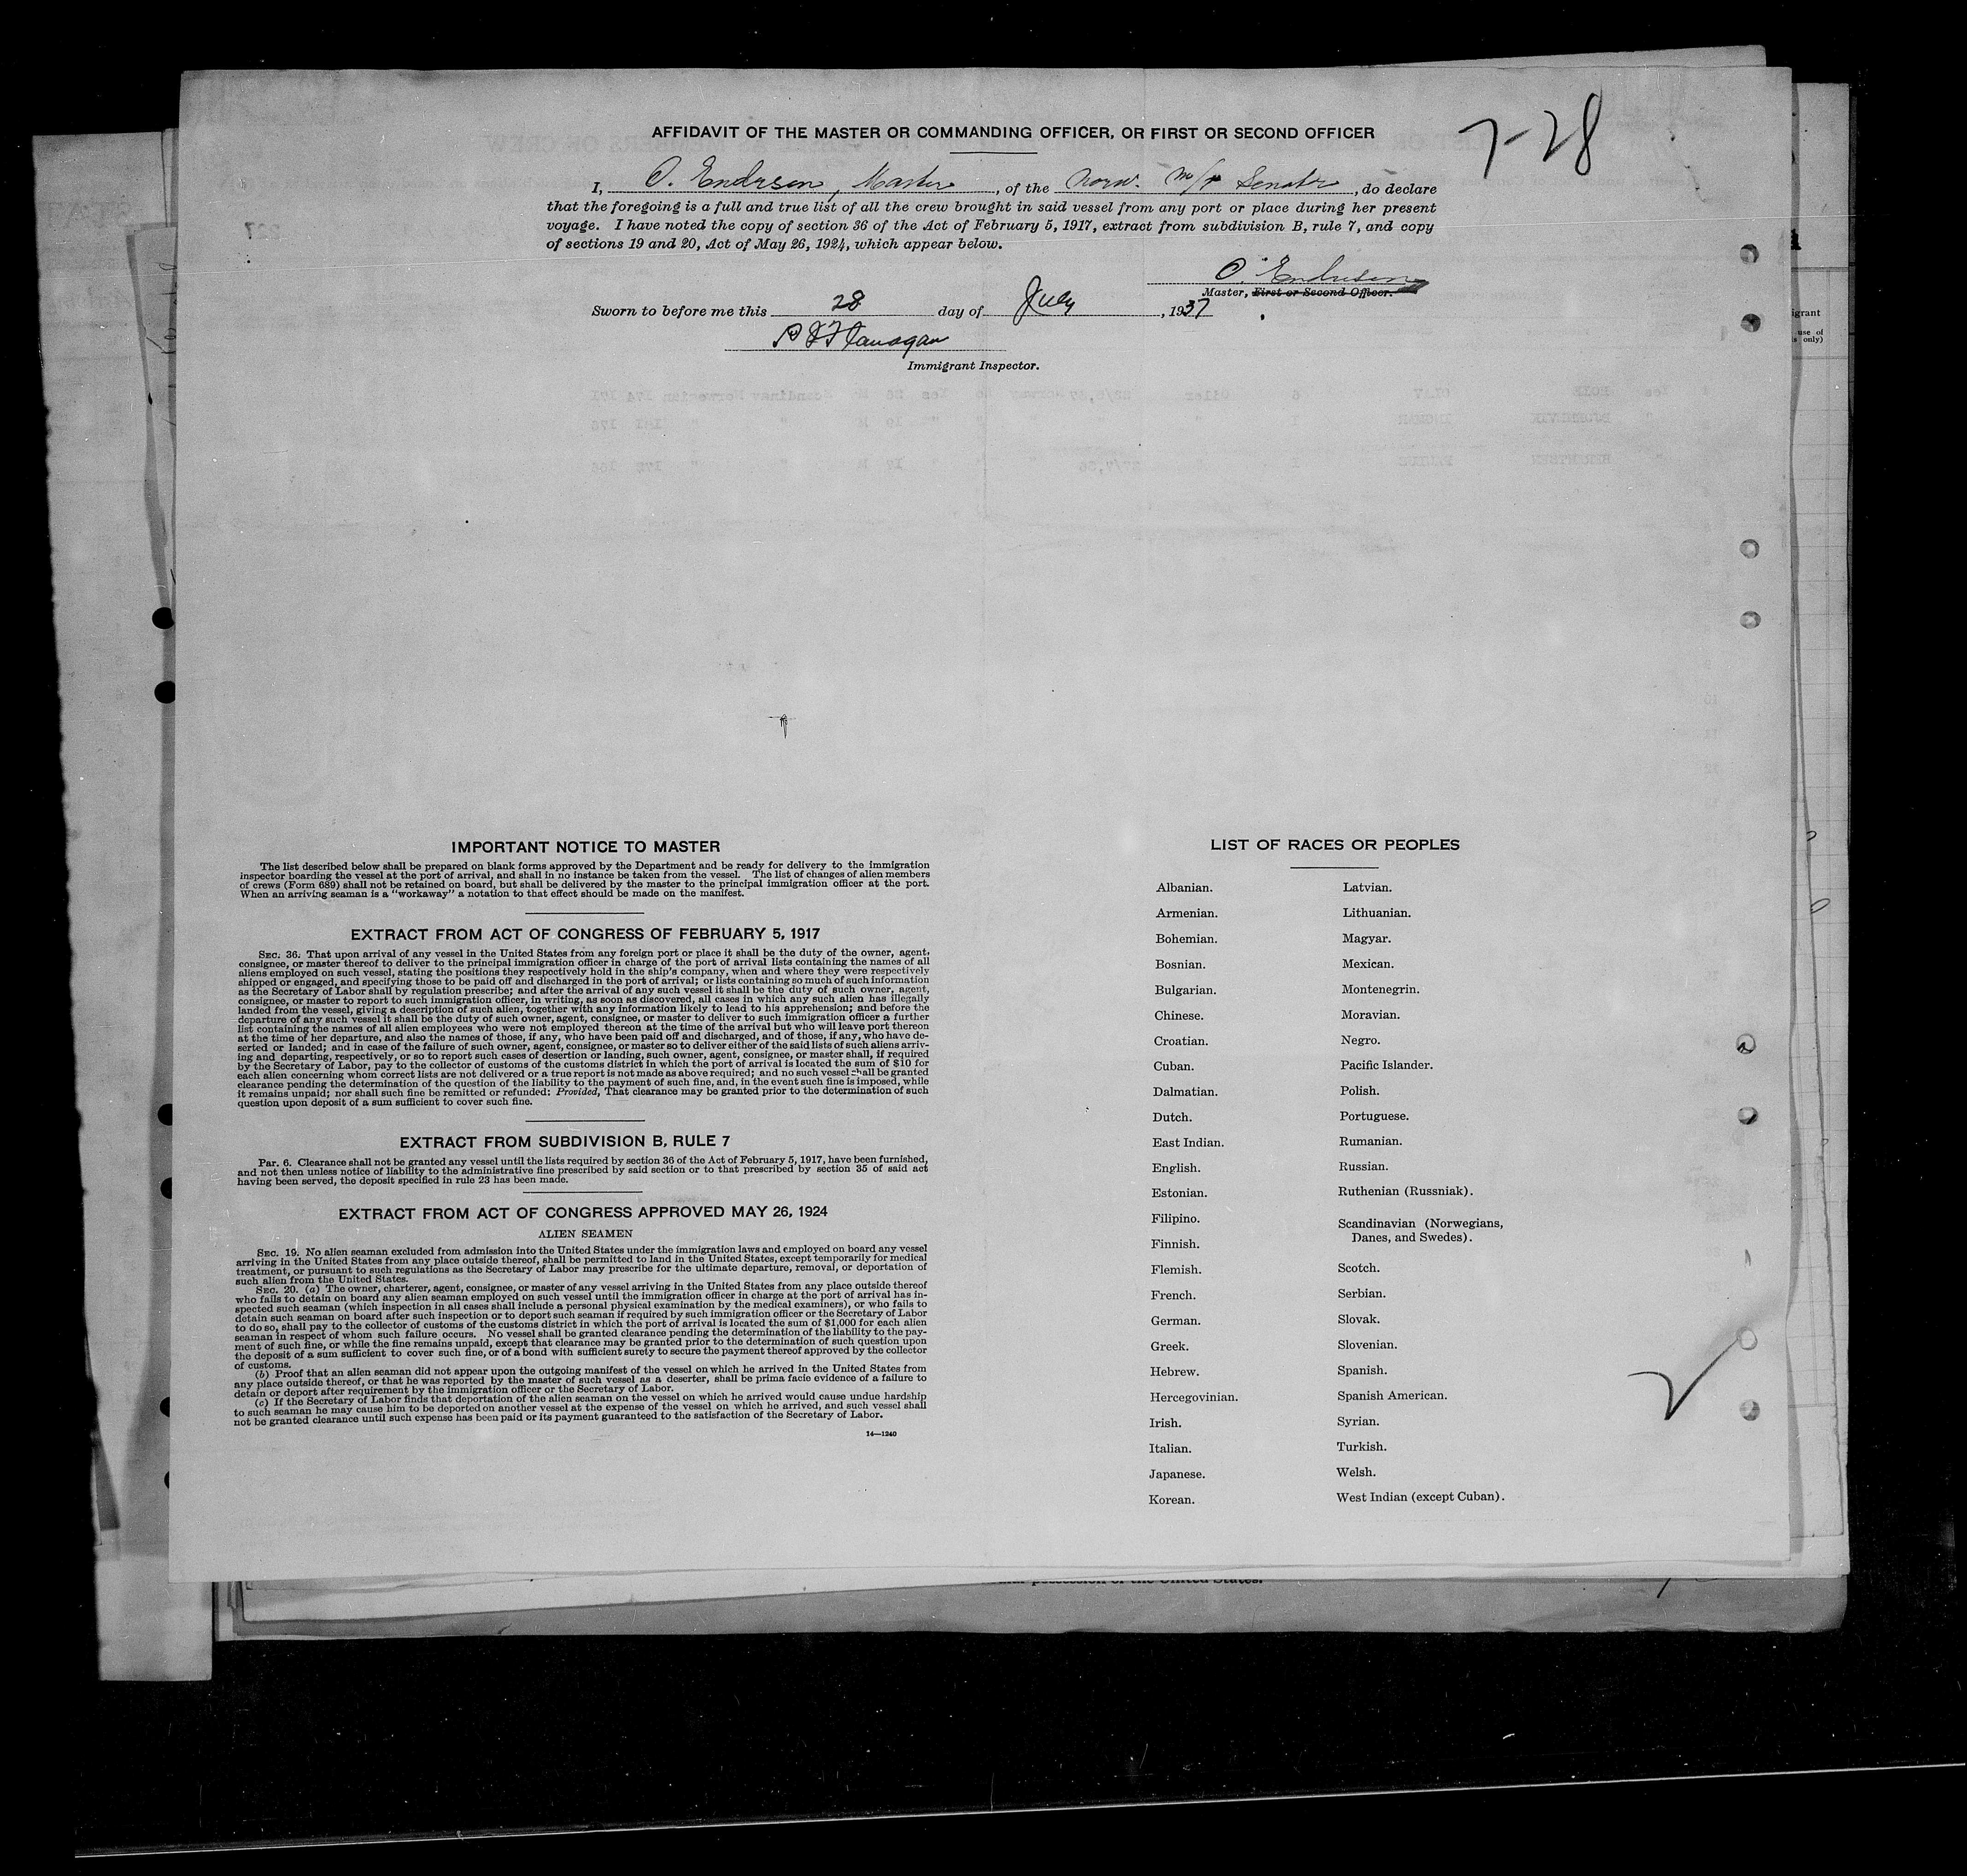 7-28
AFFIDAVIT OF THE MASTER OR COMMANDING OFFICER, OR FIRST OR SECOND OFFICER
I, O. Endresen, Master, of the Norw. M/S Senator, do declare
that the foregoing is a full and true list of all the crew brought in said vessel from any port or place during her present
voyage. I have noted the copy of section 36 of the Act of February 5, 1917, extract from subdivision B, rule 7, and copy
of sections 19 and 20, Act of May 26, 1924, which appear below.
O. Endresen
Master, First or Second Officer.
Sworn to before me this 28 day of July, 1937
Flanagan
Immigrant Inspector.
IMPORTANT NOTICE TO MASTER
The list described below shall be prepared on blank forms approved by the Department and be ready for delivery to the immigration
inspector boarding the vessel at the port of arrival, and shall in no instance be taken from the vessel. The list of changes of alien members
of crews (Form 689) shall not be retained on board, but shall be delivered by the master to the principal immigration officer at the port.
When an arriving seaman is a "workaway" a notation to that effect should be made on the manifest.
EXTRACT FROM ACT OF CONGRESS OF FEBRUARY 5, 1917
SEC. 36. That upon arrival of any vessel in the United States from any foreign port or place it shall be the duty of the owner, agent,
consignee, or master thereof to deliver to the principal immigration officer in charge of the port of arrival lists containing the names of all
aliens employed on such vessel, stating the positions they respectively hold in the ship's company, when and where they were respectively
shipped or engaged, and specifying those to be paid off and discharged in the port of arrival; or lists containing so much of such information
as the Secretary of Labor shall by regulation prescribe; and after the arrival of any such vessel it shall be the duty of such owner, agent,
consignee, or master to report to such immigration officer, in writing, as soon as discovered, all cases in which any such alien has illegally
landed from the vessel, giving a description of such alien, together with any information likely to lead to his apprehension; and before the
departure of any such vessel it shall be the duty of such owner, agent, consignee, or master to deliver to such immigration officer a further
list containing the names of all alien employees who were not employed thereon at the time of the arrival but who will leave port thereon
at the time of her departure, and also the names of those, if any, who have been paid off and discharged, and of those, if any, who have de-
serted or landed; and in case of the failure of such owner, agent, consignee, or master so to deliver either of the said lists of such aliens arriv-
ing and departing, respectively, or so to report such cases of desertion or landing, such owner, agent, consignee, or master shall, if required
by the Secretary of Labor, pay to the collector of customs of the customs district in which the port of arrival is located the sum of $10 for
each alien concerning whom correct lists are not delivered or a true report is not made as above required; and no such vessel shall be granted
clearance pending the determination of the question of the liability to the payment of such fine, and, in the event such fine is imposed, while
it remains unpaid; nor shall such fine be remitted or refunded: Provided, That clearance may be granted prior to the determination of such
question upon deposit of a sum sufficient to cover such fine.
EXTRACT FROM SUBDIVISION B, RULE 7
Par. 6. Clearance shall not be granted any vessel until the lists required by section 36 of the Act of February 5, 1917, have been furnished,
and not then unless notice of liability to the administrative fine prescribed by said section or to that prescribed by section 35 of said act
having been served, the deposit specified in rule 23 has been made.
EXTRACT FROM ACT OF CONGRESS APPROVED MAY 26, 1924
ALIEN SEAMEN
SEC. 19. No alien seaman excluded from admission into the United States under the immigration laws and employed on board any vessel
arriving in the United States from any place outside thereof, shall be permitted to land in the United States, except temporarily for medical
treatment, or pursuant to such regulations as the Secretary of Labor may prescribe for the ultimate departure, removal, or deportation of
such alien from the United States.
SEC. 20. (a) The owner, charterer, agent, consignee, or master of any vessel arriving in the United States from any place outside thereof
who fails to detain on board any alien seaman employed on such vessel until the immigration officer in charge at the port of arrival has in-
spected such seaman (which inspection in all cases shall include a personal physical examination by the medical examiners), or who fails to
detain such seaman on board after such inspection or to deport such seaman if required by such immigration officer or the Secretary of Labor
to do so, shall pay to the collector of customs of the customs district in which the port of arrival is located the sum of $1,000 for each alien
seaman in respect of whom such failure occurs. No vessel shall be granted clearance pending the determination of the liability to the pay-
ment of such fine, or while the fine remains unpaid, except that clearance may be granted prior to the determination of such question upon
the deposit of a sum sufficient to cover such fine, or of a bond with sufficient surety to secure the payment thereof approved by the collector
of customs.
(b) Proof that an alien seaman did not appear upon the outgoing manifest of the vessel on which he arrived in the United States from
any place outside thereof, or that he was reported by the master of such vessel as a deserter, shall be prima facie evidence of a failure to
detain or deport after requirement by the immigration officer or the Secretary of Labor.
(c) If the Secretary of Labor finds that deportation of the alien seaman on the vessel on which he arrived would cause undue hardship
to such seaman he may cause him to be deported on another vessel at the expense of the vessel on which he arrived, and such vessel shall
not be granted clearance until such expense has been paid or its payment guaranteed to the satisfaction of the Secretary of Labor.
14—1240
LIST OF RACES OR PEOPLES
Albanian.
Armenian.
Bohemian.
Bosnian.
Bulgarian.
Chinese.
Croatian.
Cuban.
Dalmatian.
Dutch.
East Indian.
English.
Estonian.
Filipino.
Finnish.
Flemish.
French.
German.
Greek.
Hebrew.
Hercegovinian.
Irish.
Italian.
Japanese.
Korean.
Latvian.
Lithuanian.
Magyar.
Mexican.
Montenegrin.
Moravian.
Negro.
Pacific Islander.
Polish.
Portuguese.
Rumanian.
Russian.
Ruthenian (Russniak).
Scandinavian (Norwegians,
Danes, and Swedes).
Scotch.
Serbian.
Slovak.
Slovenian.
Spanish.
Spanish American.
Syrian.
Turkish.
Welsh.
West Indian (except Cuban).